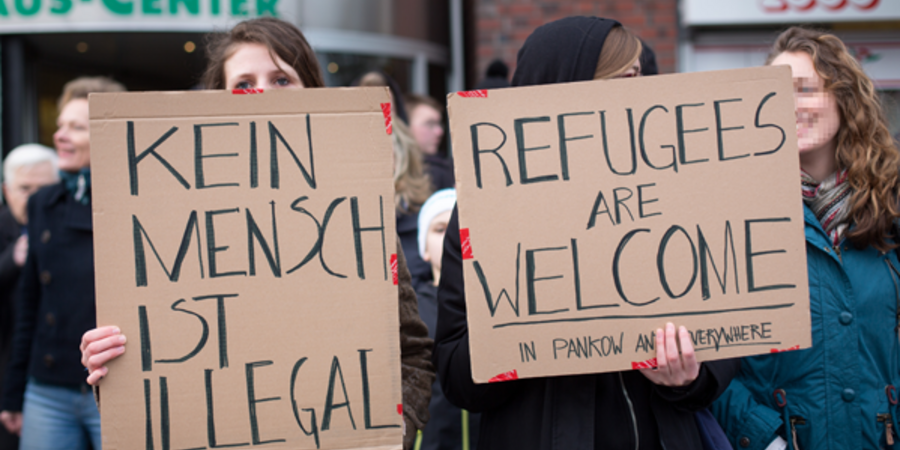 AUS-CENTER
KEIN
MENSCH
IST
ILLEGAL
REFUGEES
ARE
WELCOME
IN PANKOW AND EVERYWHERE